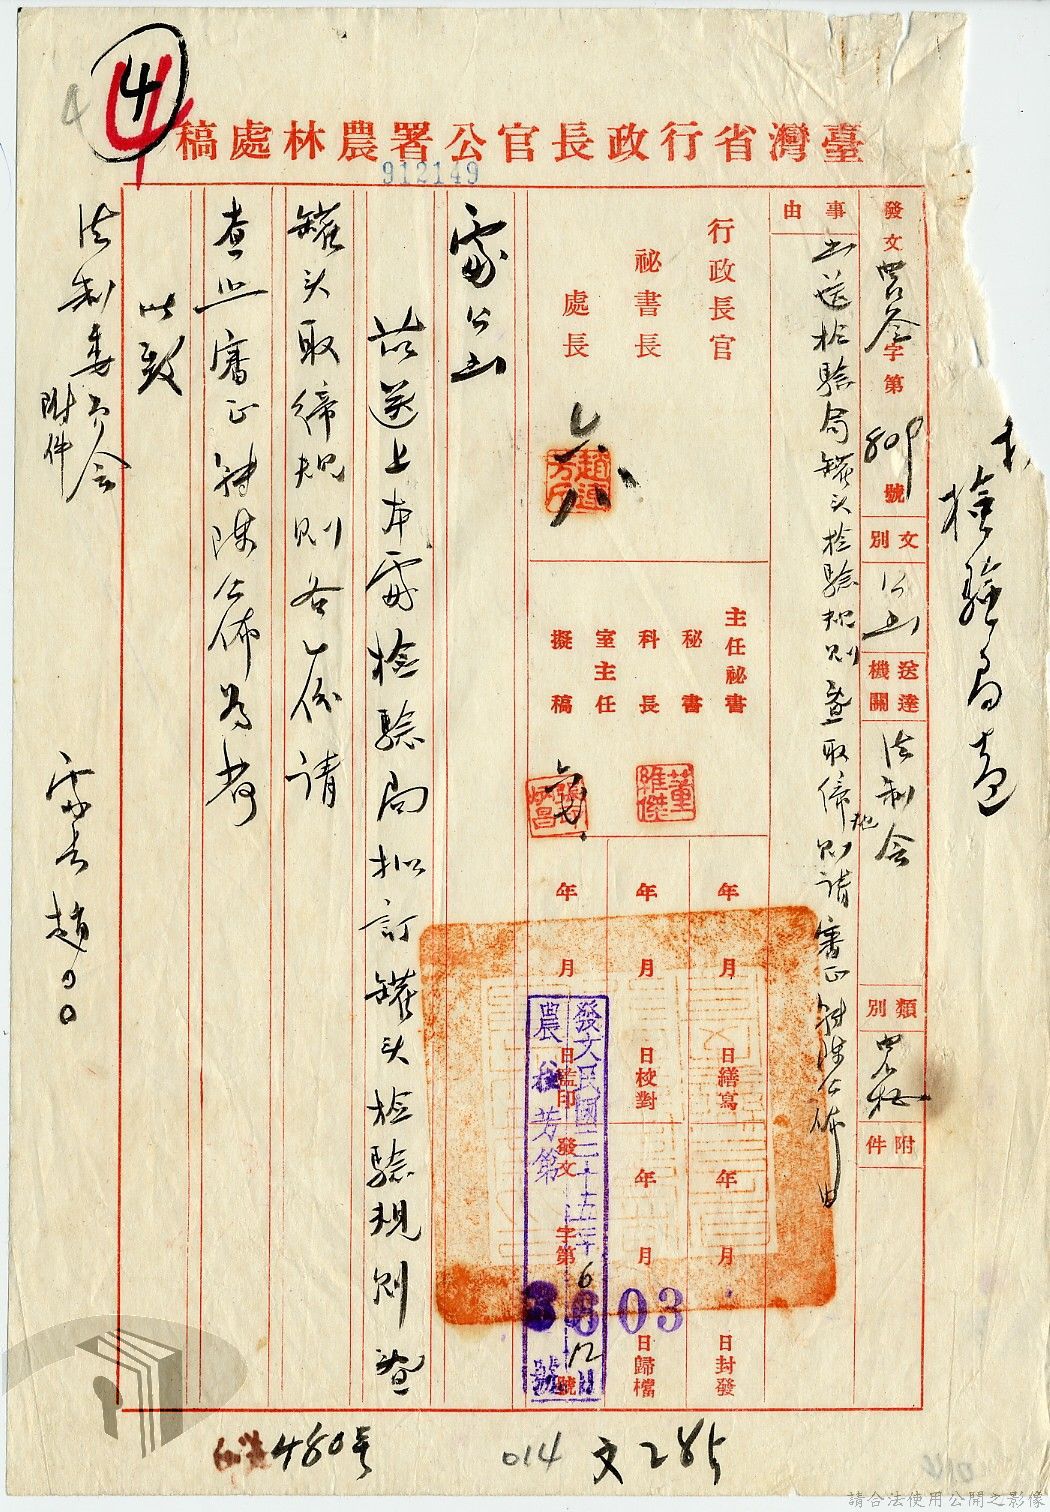 4
臺灣省行政長官公署農林處稿
912149
檢驗局
發文
字第
809
號
文別
公函
送達機關
法制會
類別
附件
事由
函送檢驗局罐头檢驗規則暨取締規則請審正轉陳公佈由
行政長官
祕書長
處長
主任祕書
秘書
科長
董維傑
室主任
擬稿
年 月 日繕寫
年 月 日封發
年 月 日校對
年 月 日歸檔
年 月 日監印
發文 字第 號
發文民國三十五年6月12日
農 芳第 3603 號
處公函
茲送上本處檢驗局拟訂罐头檢驗規則暨
罐头取締規則各一份請
查照審正轉陳公佈為荷
此致
法制委員会
附件
處長趙〇〇
480号
014 文285
請合法使用公開之影像